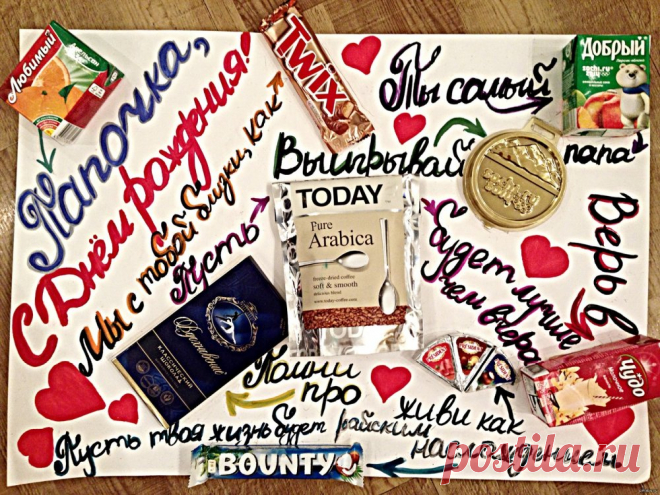 Любимый
Папочка,
С Днём рождения!
Мы с тобой близки, как
TWIX
Ты самый
Добрый
sochi.ru
папа
Выигрывай
Пусть
TODAY
Pure
Arabica
freeze-dried coffee
soft & smooth
www.today-coffee.com
будет лучше
чем вчера
Верь в
Чудо
Вдохновение
КЛАССИЧЕСКИЙ
ШОКОЛАД
Помни
про
живи как
наслаждением
Пусть твоя жизнь будет райским
BOUNTY
postila.ru